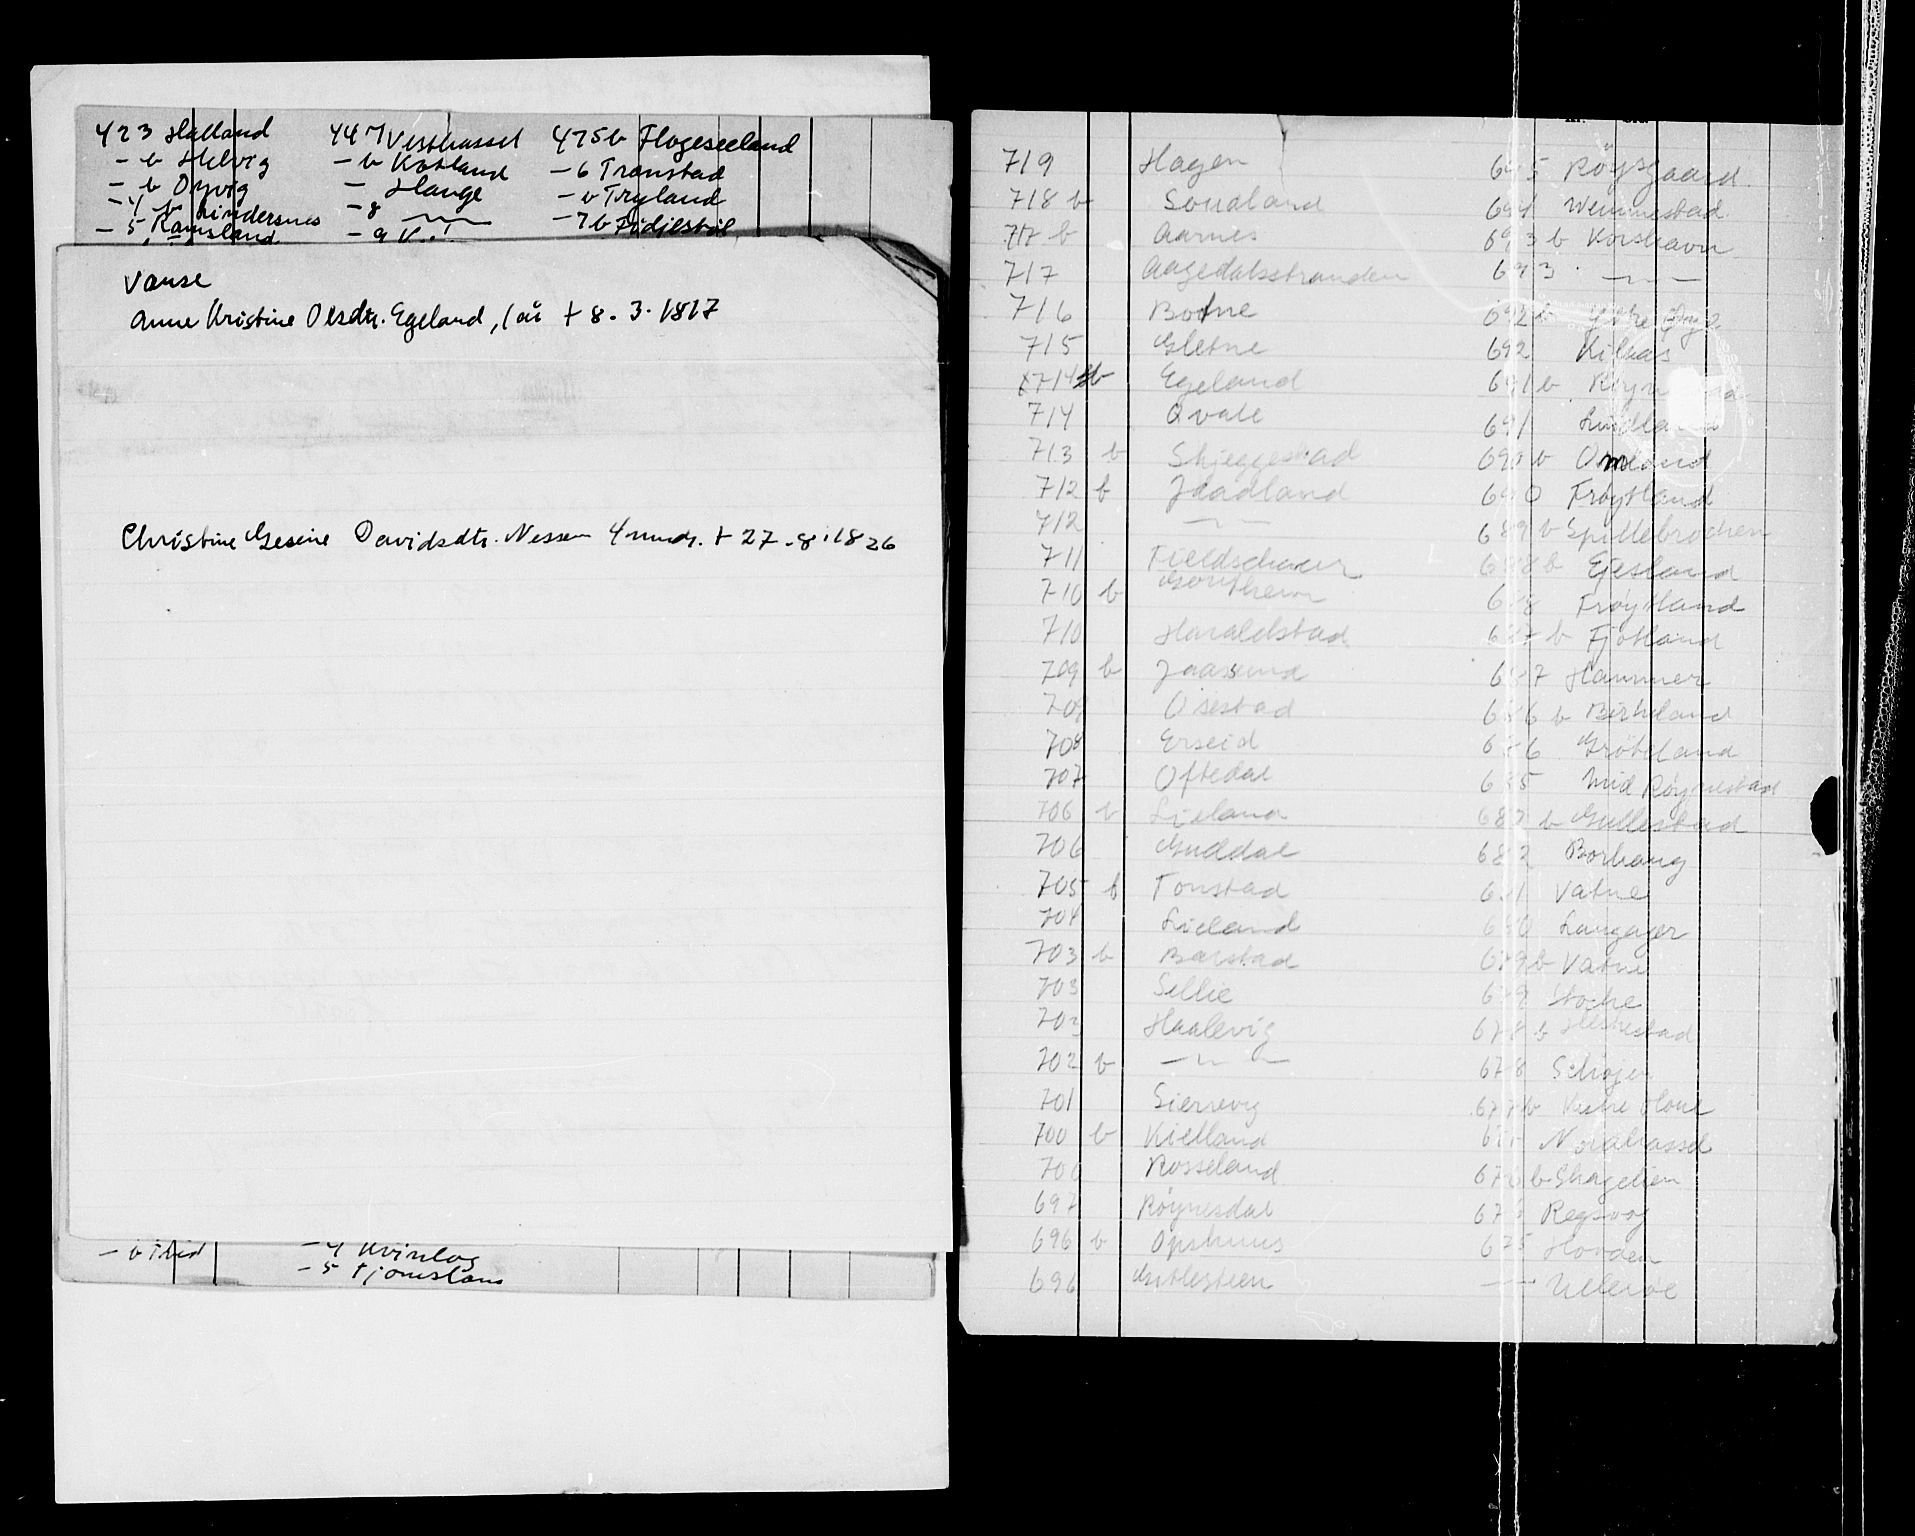 423 Halland
- b Helvig
- b Opvig
- 4 b Lindersnes
- 5 Ramsland
447 Vesthassel
- b Kotland
- Hauge
- 8 ———
- 9
475b Flageseeland
- 6 Transtad
- b Tryland
- 7b Fidjestøl
Vanse
Anne Kristine Olsdtr. Egeland, 1 år + 8.3.1817
Christine Gesine Davidsdtr. Nessen 4 mndr. + 27.8.1826
- b Ibid
- 4 Kvinlog
- 5 Tjomsland
719 Hagen
718 b Soudland
717 b Aarnes
717 Aagedalsstranden
716 Botne
715 Gletne
714 b Egeland
714 Qvale
713 b Skjeggestad
712 b Jaadland
712 ———
711 Fieldschaar
710 b
710 Haraldstad
709 b Jaasund
709 Osestad
708 Erseid
707 Oftedal
706 b Lieland
706 Guddal
705 b Tonstad
704 Lieland
703 b Barstad
703 Sellie
703 Haalevig
702 b ———
701 Sierevig
700 b Kielland
700 Rosseland
697 Røynesdal
696 b Opshuus
696
695 Røysgaard
694 Wemmestad
693 b Korshavn
693 ———
692 b Ytre
692 Kilaas
691 b
691 Lindland
690 b Omland
690 Frøytland
689 b Spillebrochen
688 b Egeland
688 Frøytland
687 b Fjotland
687 Hammer
686 b Birkeland
686 Grøteland
685 Mid Røynestad
682 b Gullestad
682 Borhaug
681 Vatne
680 Langager
679 b Vatne
679 Stocke
678 b
678 Schøjen
677 b Vestre
677 Nordhassel
676 b Skagelien
676 Regevog
675 Howden
——— Ullerøe